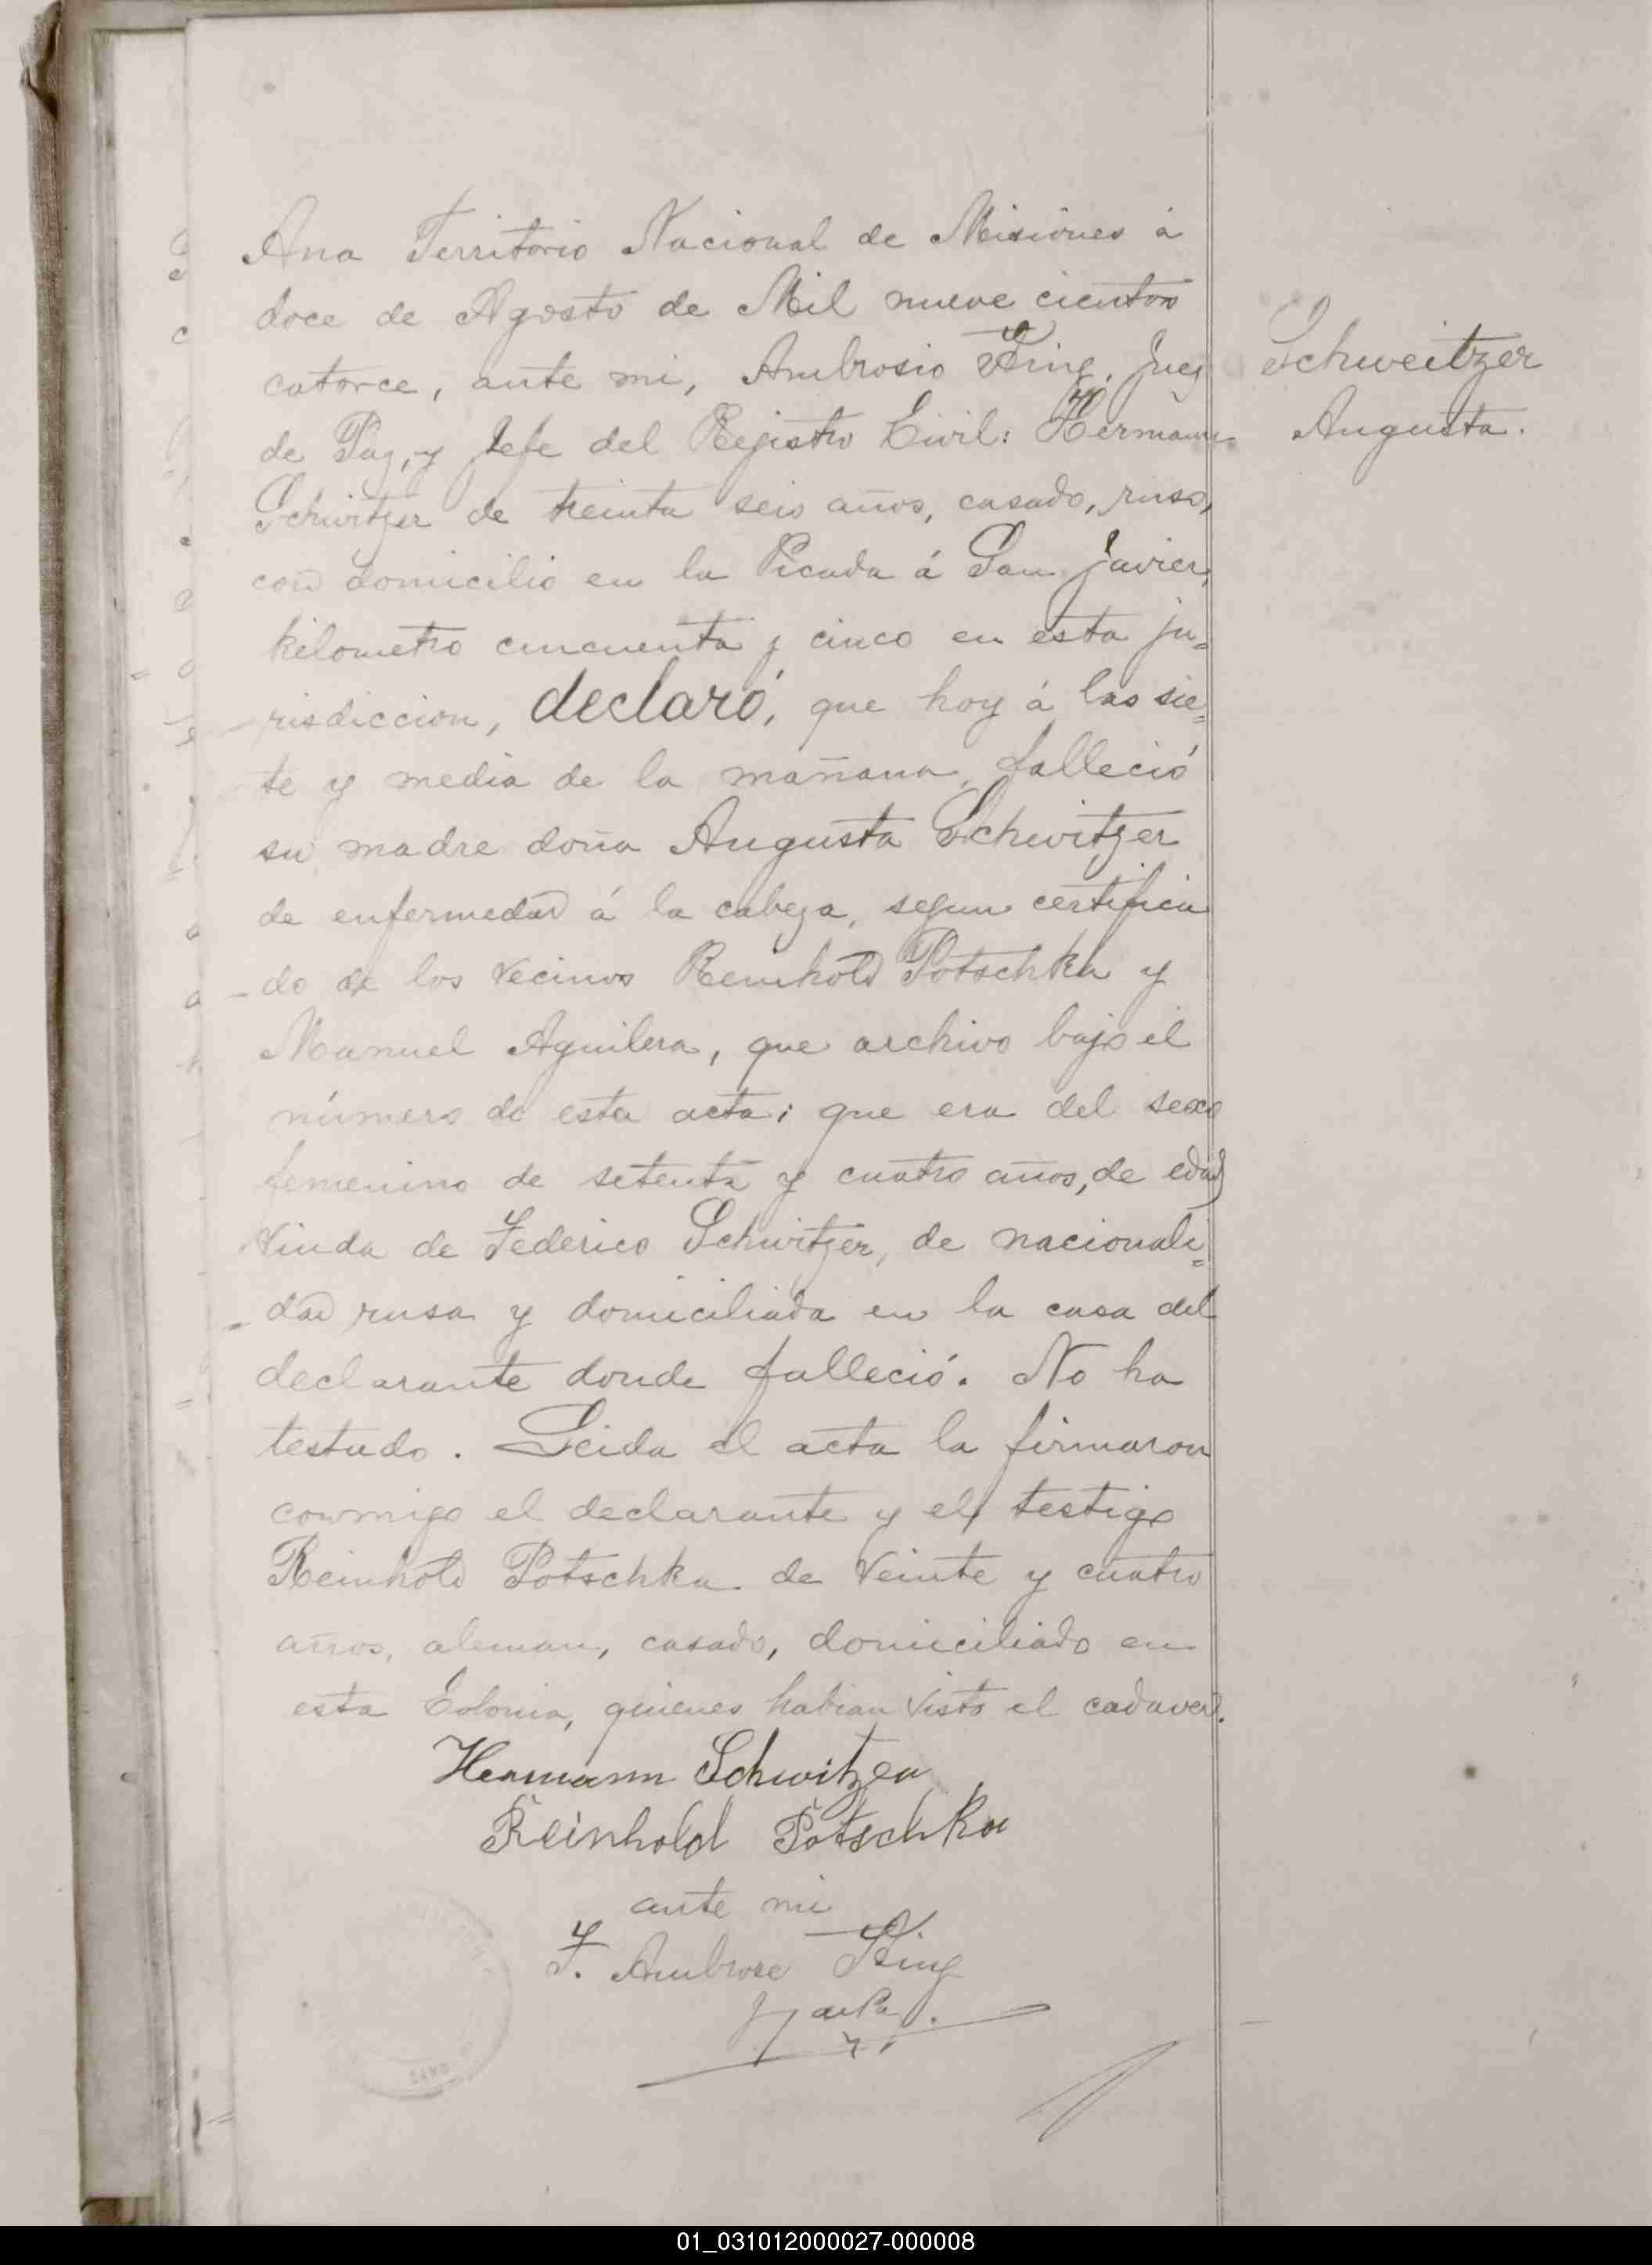 Ana Territorio Nacional de Misiones á
doce de Agosto de Mil nueve cientos
catorce, ante mi, Ambrosio King, Juez
de Paz, y Jefe del Rejistro Civil: Hermann
Schwitzer de treinta seis años, casado, ruso,
con domicilio en la Picada á San Javier,
kilometro cincuenta y cinco en esta ju=
risdiccion, declaró, que hoy á las sie=
te y media de la mañana, falleció
su madre doña Augusta Schwitzer
de enfermedad á la cabeza, segun certifica
do de los vecinos Reinhold Potschka y
Manuel Aguilera, que archivo bajo el
número de esta acta; que era del sexo
femenino de setenta y cuatro años, de edad
viuda de Federico Schwitzer, de nacionali=
dad rusa y domiciliada en la casa del
declarante donde falleció. No ha
testado. Leida el acta la firmaron
conmigo el declarante y el testigo
Reinhold Potschka de veinte y cuatro
años, aleman, casado, domiciliado en
esta Colonia, quienes habian visto el cadaver.
Hermann Schwitzer
Reinhold Potschka
ante mi
F. Ambrose King
Schweitzer
Augusta.
01_031012000027-000008